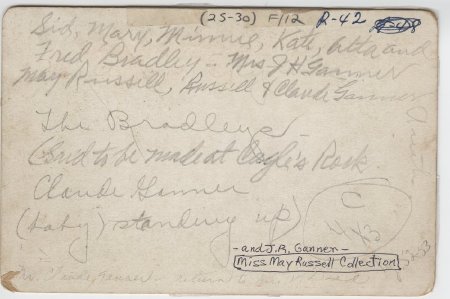 (25-30) F/12 R-42
Sid, Mary, Minnie, Kate, Atta and
Fred Bradley - Mrs J H Ganner
May Russell, Russell & Claude Ganner
The Bradleys
(Said to be made at Eagle's Rock
Claude Ganner
(baby) standing up)
C
4x3
- and J.R. Ganner -
Miss May Russell Collection